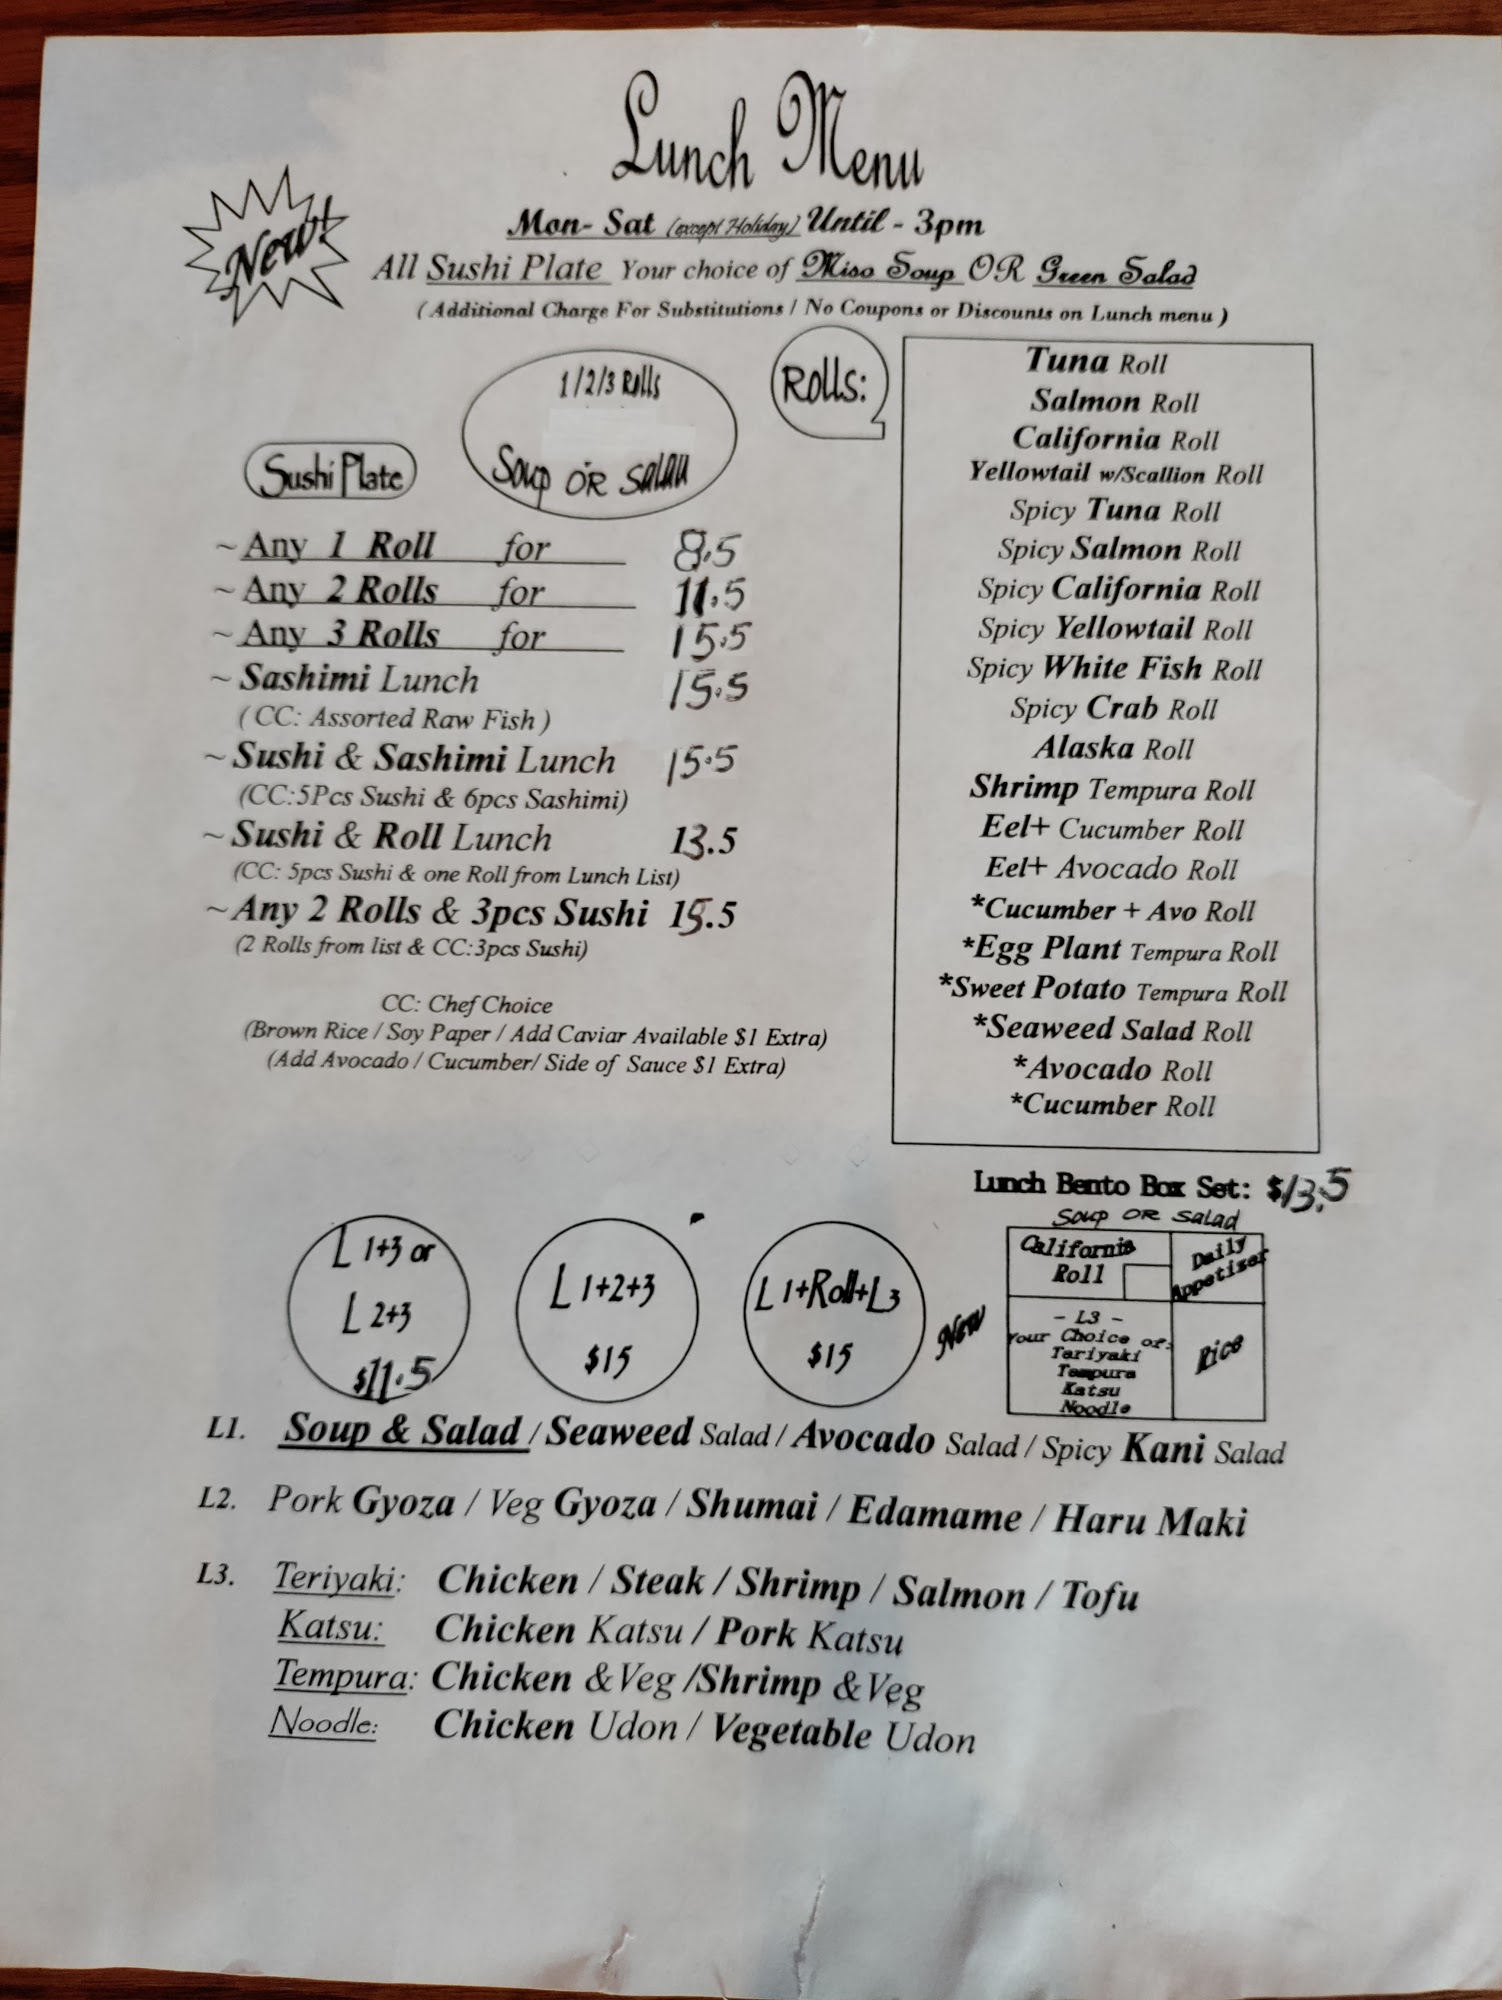 Lunch Menu
New!
Mon- Sat (except Holiday) Until - 3pm
All Sushi Plate Your choice of Miso Soup OR Green Salad
( Additional Charge For Substitutions / No Coupons or Discounts on Lunch menu )
Sushi Plate
1/2/3 Rolls
Soup OR Salad
~ Any 1 Roll for 8.5
~ Any 2 Rolls for 11.5
~ Any 3 Rolls for 15.5
~ Sashimi Lunch 15.5
( CC: Assorted Raw Fish )
~ Sushi & Sashimi Lunch 15.5
(CC:5Pcs Sushi & 6pcs Sashimi)
~ Sushi & Roll Lunch 13.5
(CC: 5pcs Sushi & one Roll from Lunch List)
~ Any 2 Rolls & 3pcs Sushi 15.5
(2 Rolls from list & CC:3pcs Sushi)
CC: Chef Choice
(Brown Rice / Soy Paper / Add Caviar Available $1 Extra)
(Add Avocado / Cucumber/ Side of Sauce $1 Extra)
Rolls:
Tuna Roll
Salmon Roll
California Roll
Yellowtail w/Scallion Roll
Spicy Tuna Roll
Spicy Salmon Roll
Spicy California Roll
Spicy Yellowtail Roll
Spicy White Fish Roll
Spicy Crab Roll
Alaska Roll
Shrimp Tempura Roll
Eel+ Cucumber Roll
Eel+ Avocado Roll
*Cucumber + Avo Roll
*Egg Plant Tempura Roll
*Sweet Potato Tempura Roll
*Seaweed Salad Roll
*Avocado Roll
*Cucumber Roll
L 1+3 or
L 2+3
$11.5
L 1+2+3
$15
L 1+Roll+L3
$15
New
Lunch Bento Box Set: $13.5
Soup OR Salad
California
Roll
Daily
Appetizer
- L3 -
Your Choice of:
Teriyaki
Tempura
Katsu
Noodle
Rice
L1. Soup & Salad / Seaweed Salad / Avocado Salad / Spicy Kani Salad
L2. Pork Gyoza / Veg Gyoza / Shumai / Edamame / Haru Maki
L3. Teriyaki: Chicken / Steak / Shrimp / Salmon / Tofu
Katsu: Chicken Katsu / Pork Katsu
Tempura: Chicken &Veg /Shrimp &Veg
Noodle: Chicken Udon / Vegetable Udon